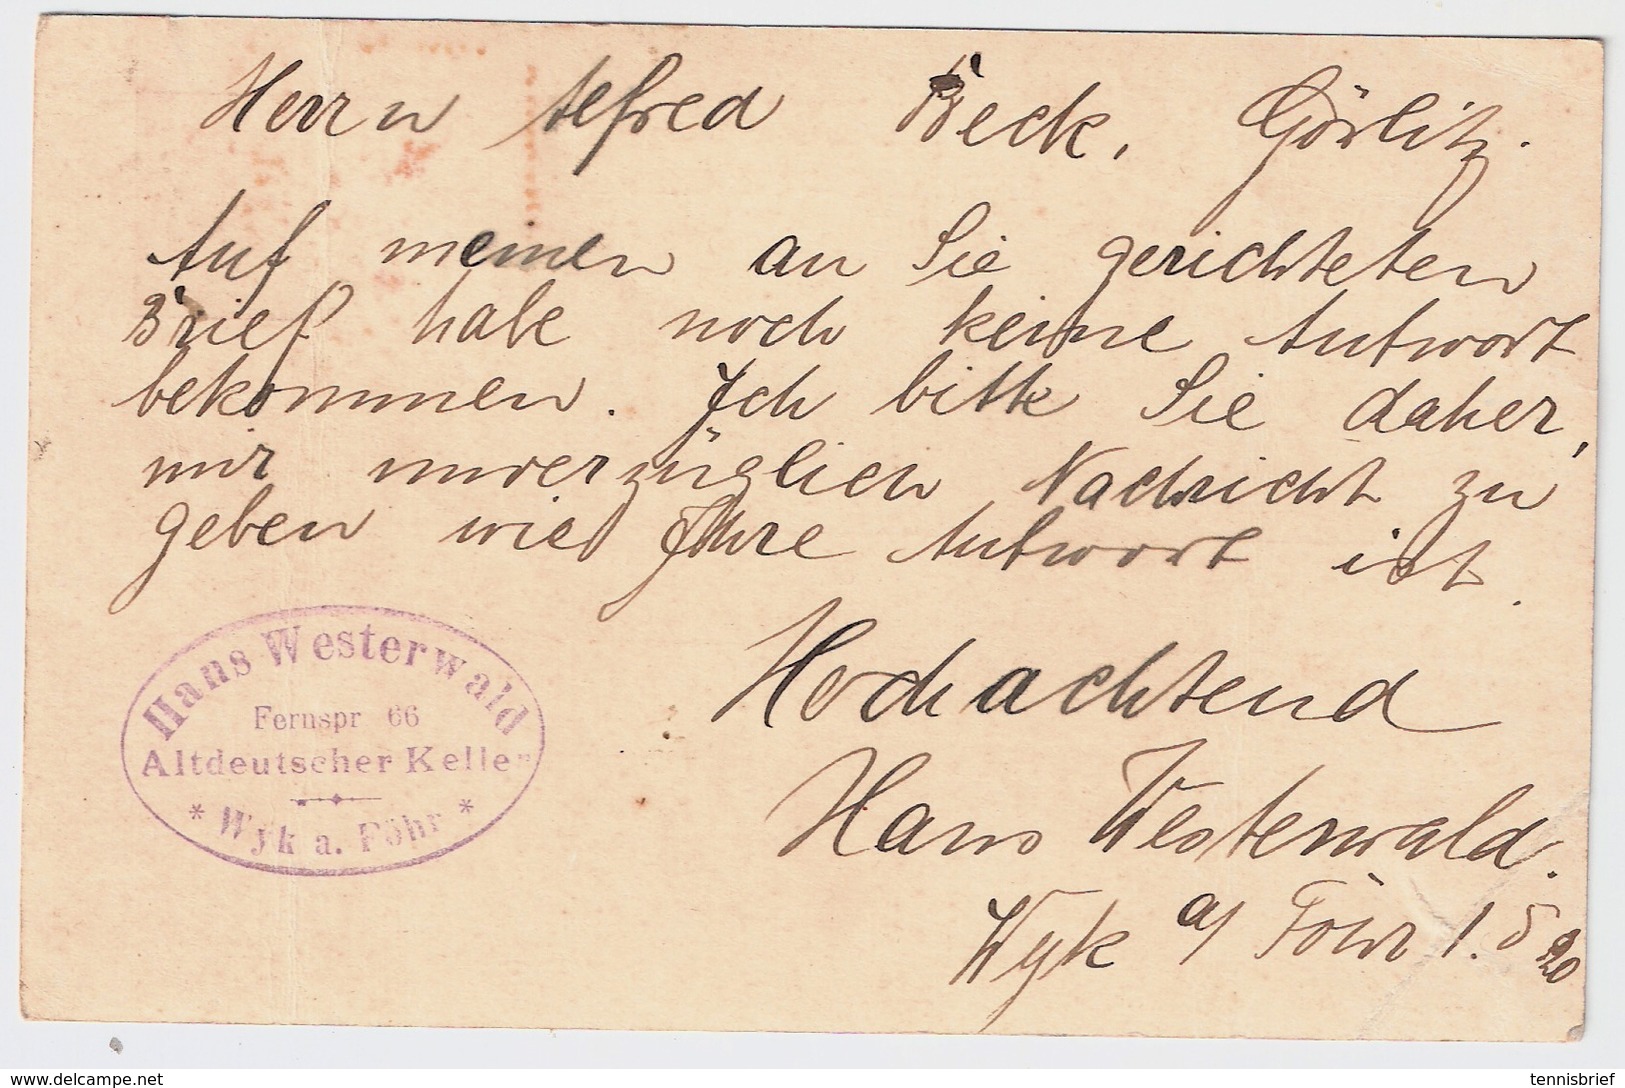 Herrn Alfred Beck, Görlitz.
Auf meinen an Sie gerichteten
Brief habe noch keine Antwort
bekommen. Ich bitte Sie daher,
mir unverzüglich Nachricht zu
geben wie Ihre Antwort ist.
Hochachtend
Hans Westerwald.
Wyk a/ Föhr 1. 5 20
Hans Westerwald
Fernspr 66
Altdeutscher Keller
* Wyk a. Föhr *
www.delcampe.net
tennisbrief